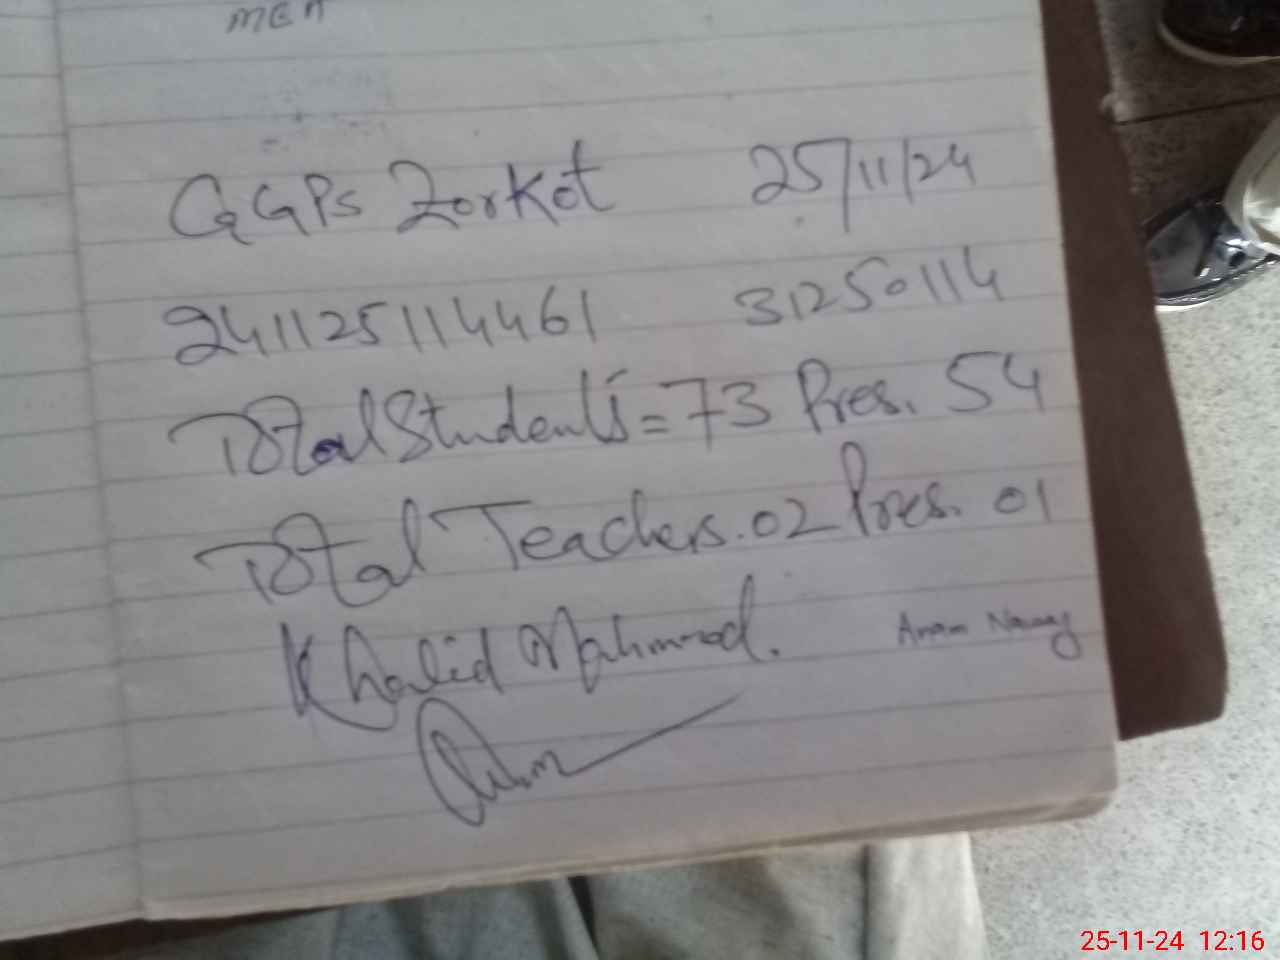 MEA
GGPS Zorkot 25/11/24
241125114461 31250114
Total Students = 73 Pres. 54
Total Teachers. 02 Pres. 01
Khalid Mahmood. Anam Nawaz
25-11-24 12:16